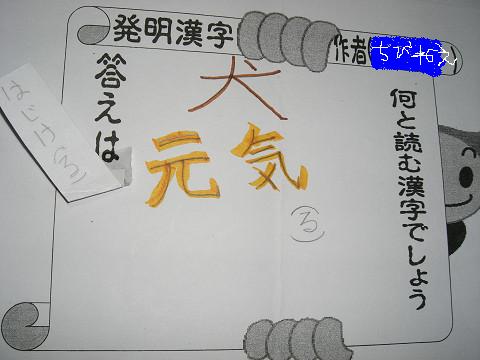 発明漢字
作者
何と読む漢字でしょう
犬
元気
る
答えは
はじけ(る)